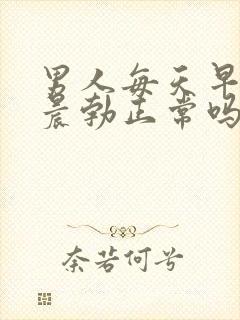 男人每天早
晨勃正常吗
奈若何兮